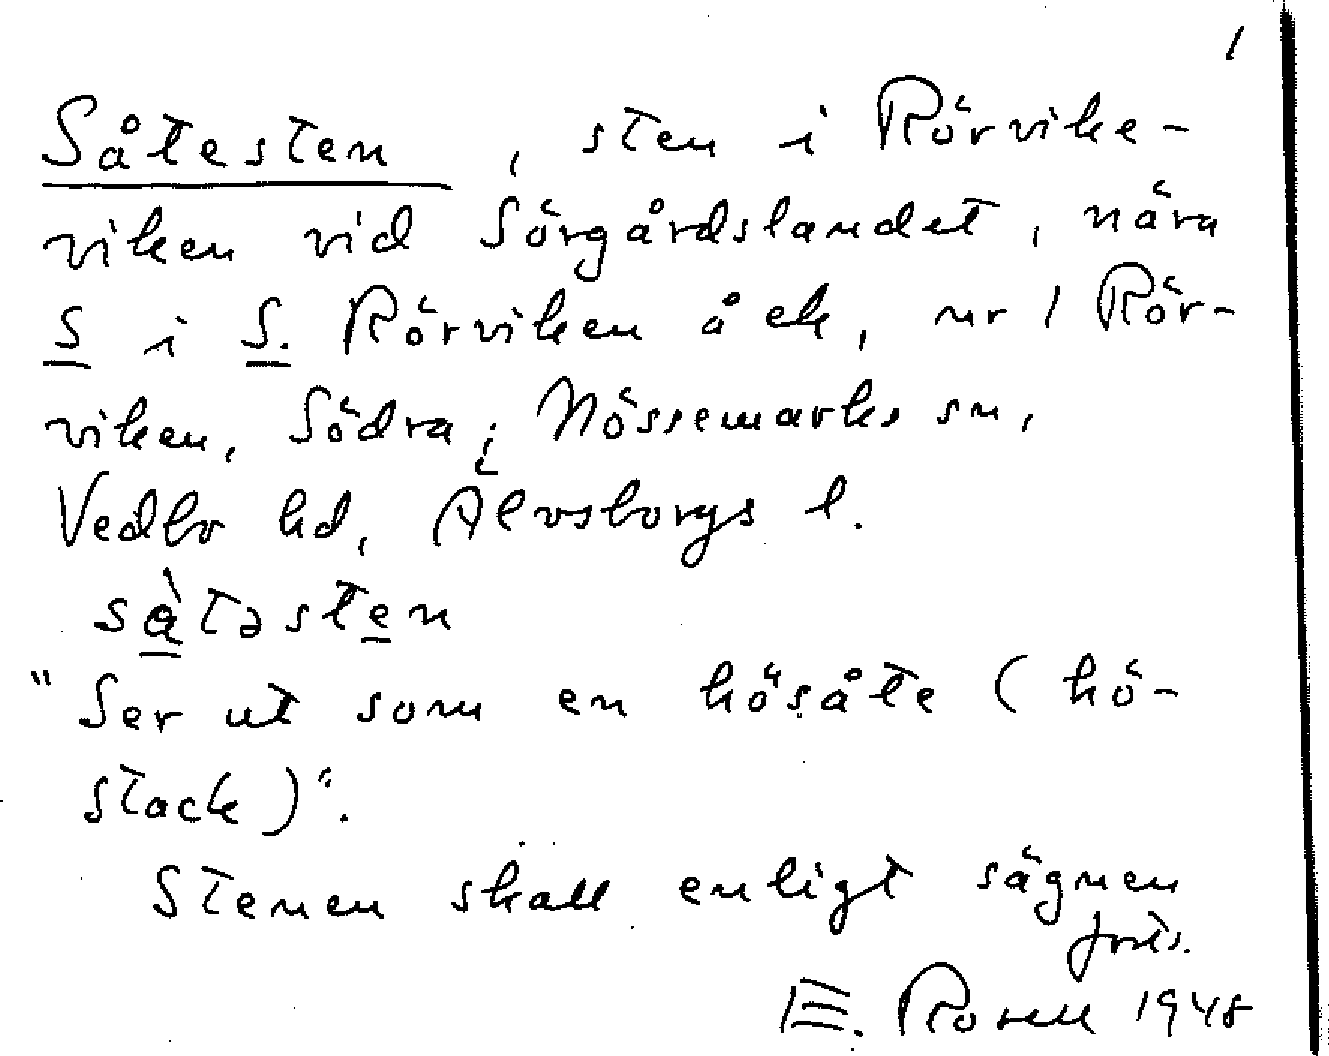 1
Såtesten, sten i Rörvike-
viken vid Sörgårdslandet, nära
S i S. Rörviken å ek, nr 1 Rör-
viken, Södra; Nössemarks sn,
Vedbo hd, Älvsborgs l.
sàtəsten
"Ser ut som en hösåte (hö-
stack)".
Stenen skall enligt sägnen
forts.
E. Rosell 1948